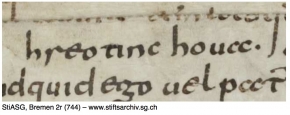 hreotinc houcc.
dquid ego uel pect
StiASG, Bremen 2r (744) – www.stiftsarchiv.sg.ch